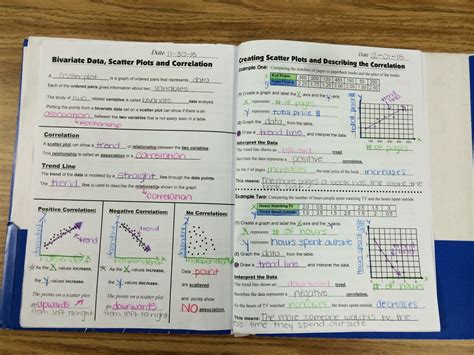 Date 11-30-15
Bivariate Data, Scatter Plots and Correlation
A scatter plot is a graph of ordered pairs that represents data
Each of the ordered pairs gives information about two variables
The study of two related variables is called bivariate data analysis.
Plotting the points from a bivariate data set on a graph allows you to determine the
association between the two variables that is not easily seen in a table.
relationship
Correlation
A scatter plot can show a trend or relationship between the two variables.
This relationship is called an association or correlation
Trend Line
The trend of data is modeled by a straight line through the data points.
The trend line is used to describe the relationship shown in the graph
correlation
Positive Correlation:
Negative Correlation:
No Correlation:
dependent
trend
independent
dependent
trend
independent
dependent
independent
As the X values increase,
the Y values increase.
As the X values increase,
the Y values decrease.
Data point
are scattered
The points on a scatter
plot go upwards
from left to right
The points on a scatter
plot go downwards
from left to right
and points show
NO association.
Date 12-01-15
Creating Scatter Plots and Describing the Correlation
Example One: Comparing the numbers of pages in paperback books and the price of the books
# of Pages
(1) Create a graph and label the X axis and the Y axis.
X represents # of pages
Y represents total price $
(2) Graph the data from the table.
(3) Draw a trend line
Interpret the Data
The trend line shows an upward trend,
therefore the data represents a positive correlation.
As the # of pages increases, the total price of the book increases
This means: The more pages a book has the more the
# of pages
Example Two: Comparing the number of hours people spent watching TV and the hours spent outside.
Hours Watching TV
Hours Spent Outside
(1) Create a graph and label the X axis and the Y axis.
X represents
Y represents hours spent outside
(2) Graph the data from the table.
(3) Draw a trend line and interpret the data.
Interpret the Data
The trend line shows an downward trend,
therefore the data represents a negative correlation.
As the hours of TV watched increases the hours spent outside decreases
This means: The more someone watches tv the
less time they spend outside